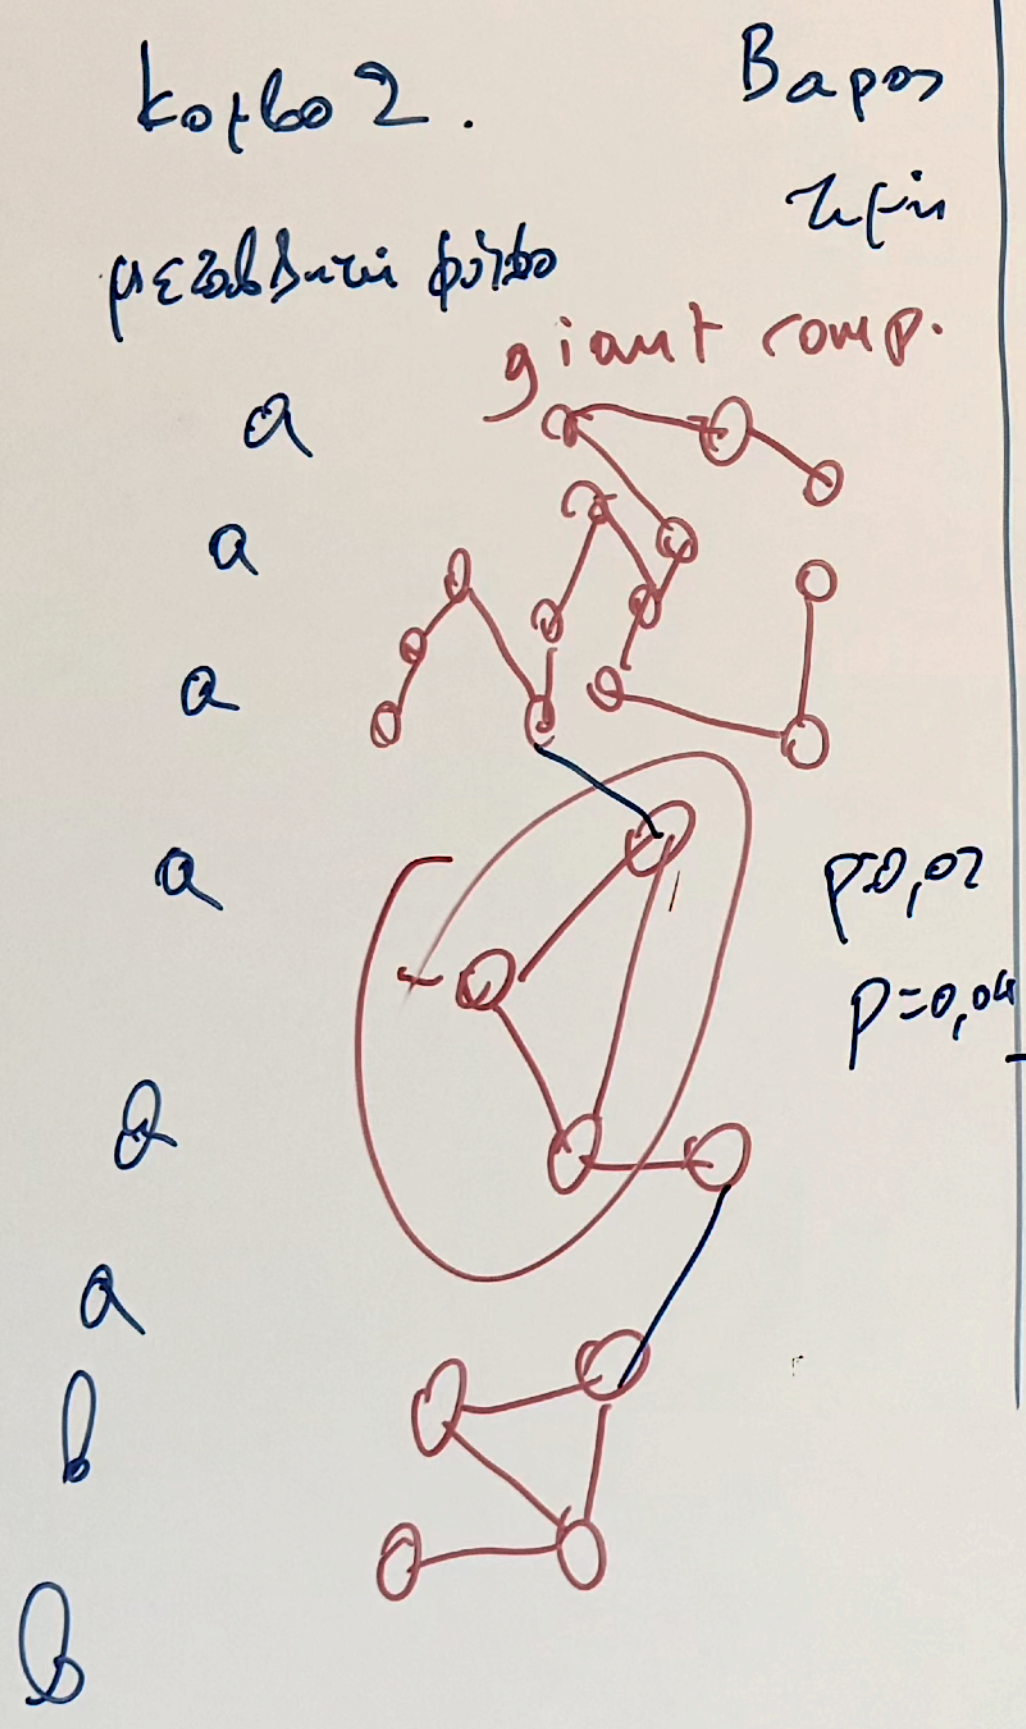 κομβο 2.
Βαρος
τιμή
μεταβλητή φύλο
giant comp.
a
a
a
a
p=0,02
p=0,04
a
a
b
b